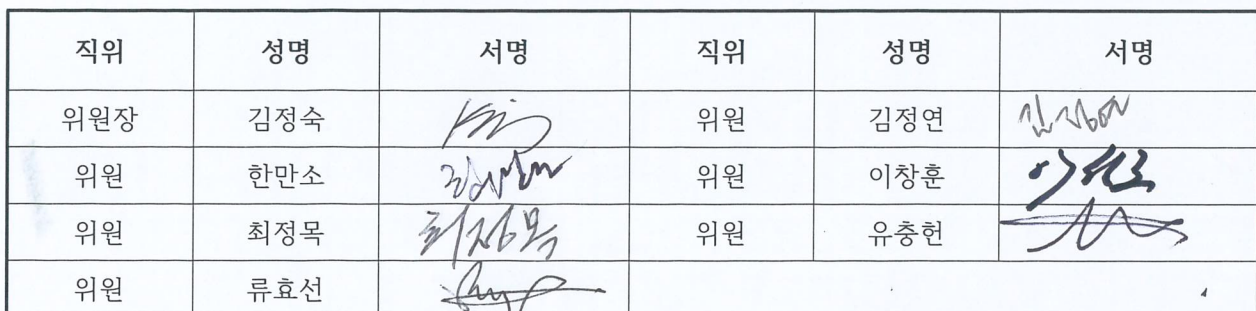 직위 성명 서명 직위 성명 서명
위원장 김정숙 위원 김정연 김정연
위원 한만소 위원 이창훈
위원 최정목 최정목 위원 유충헌
위원 류효선